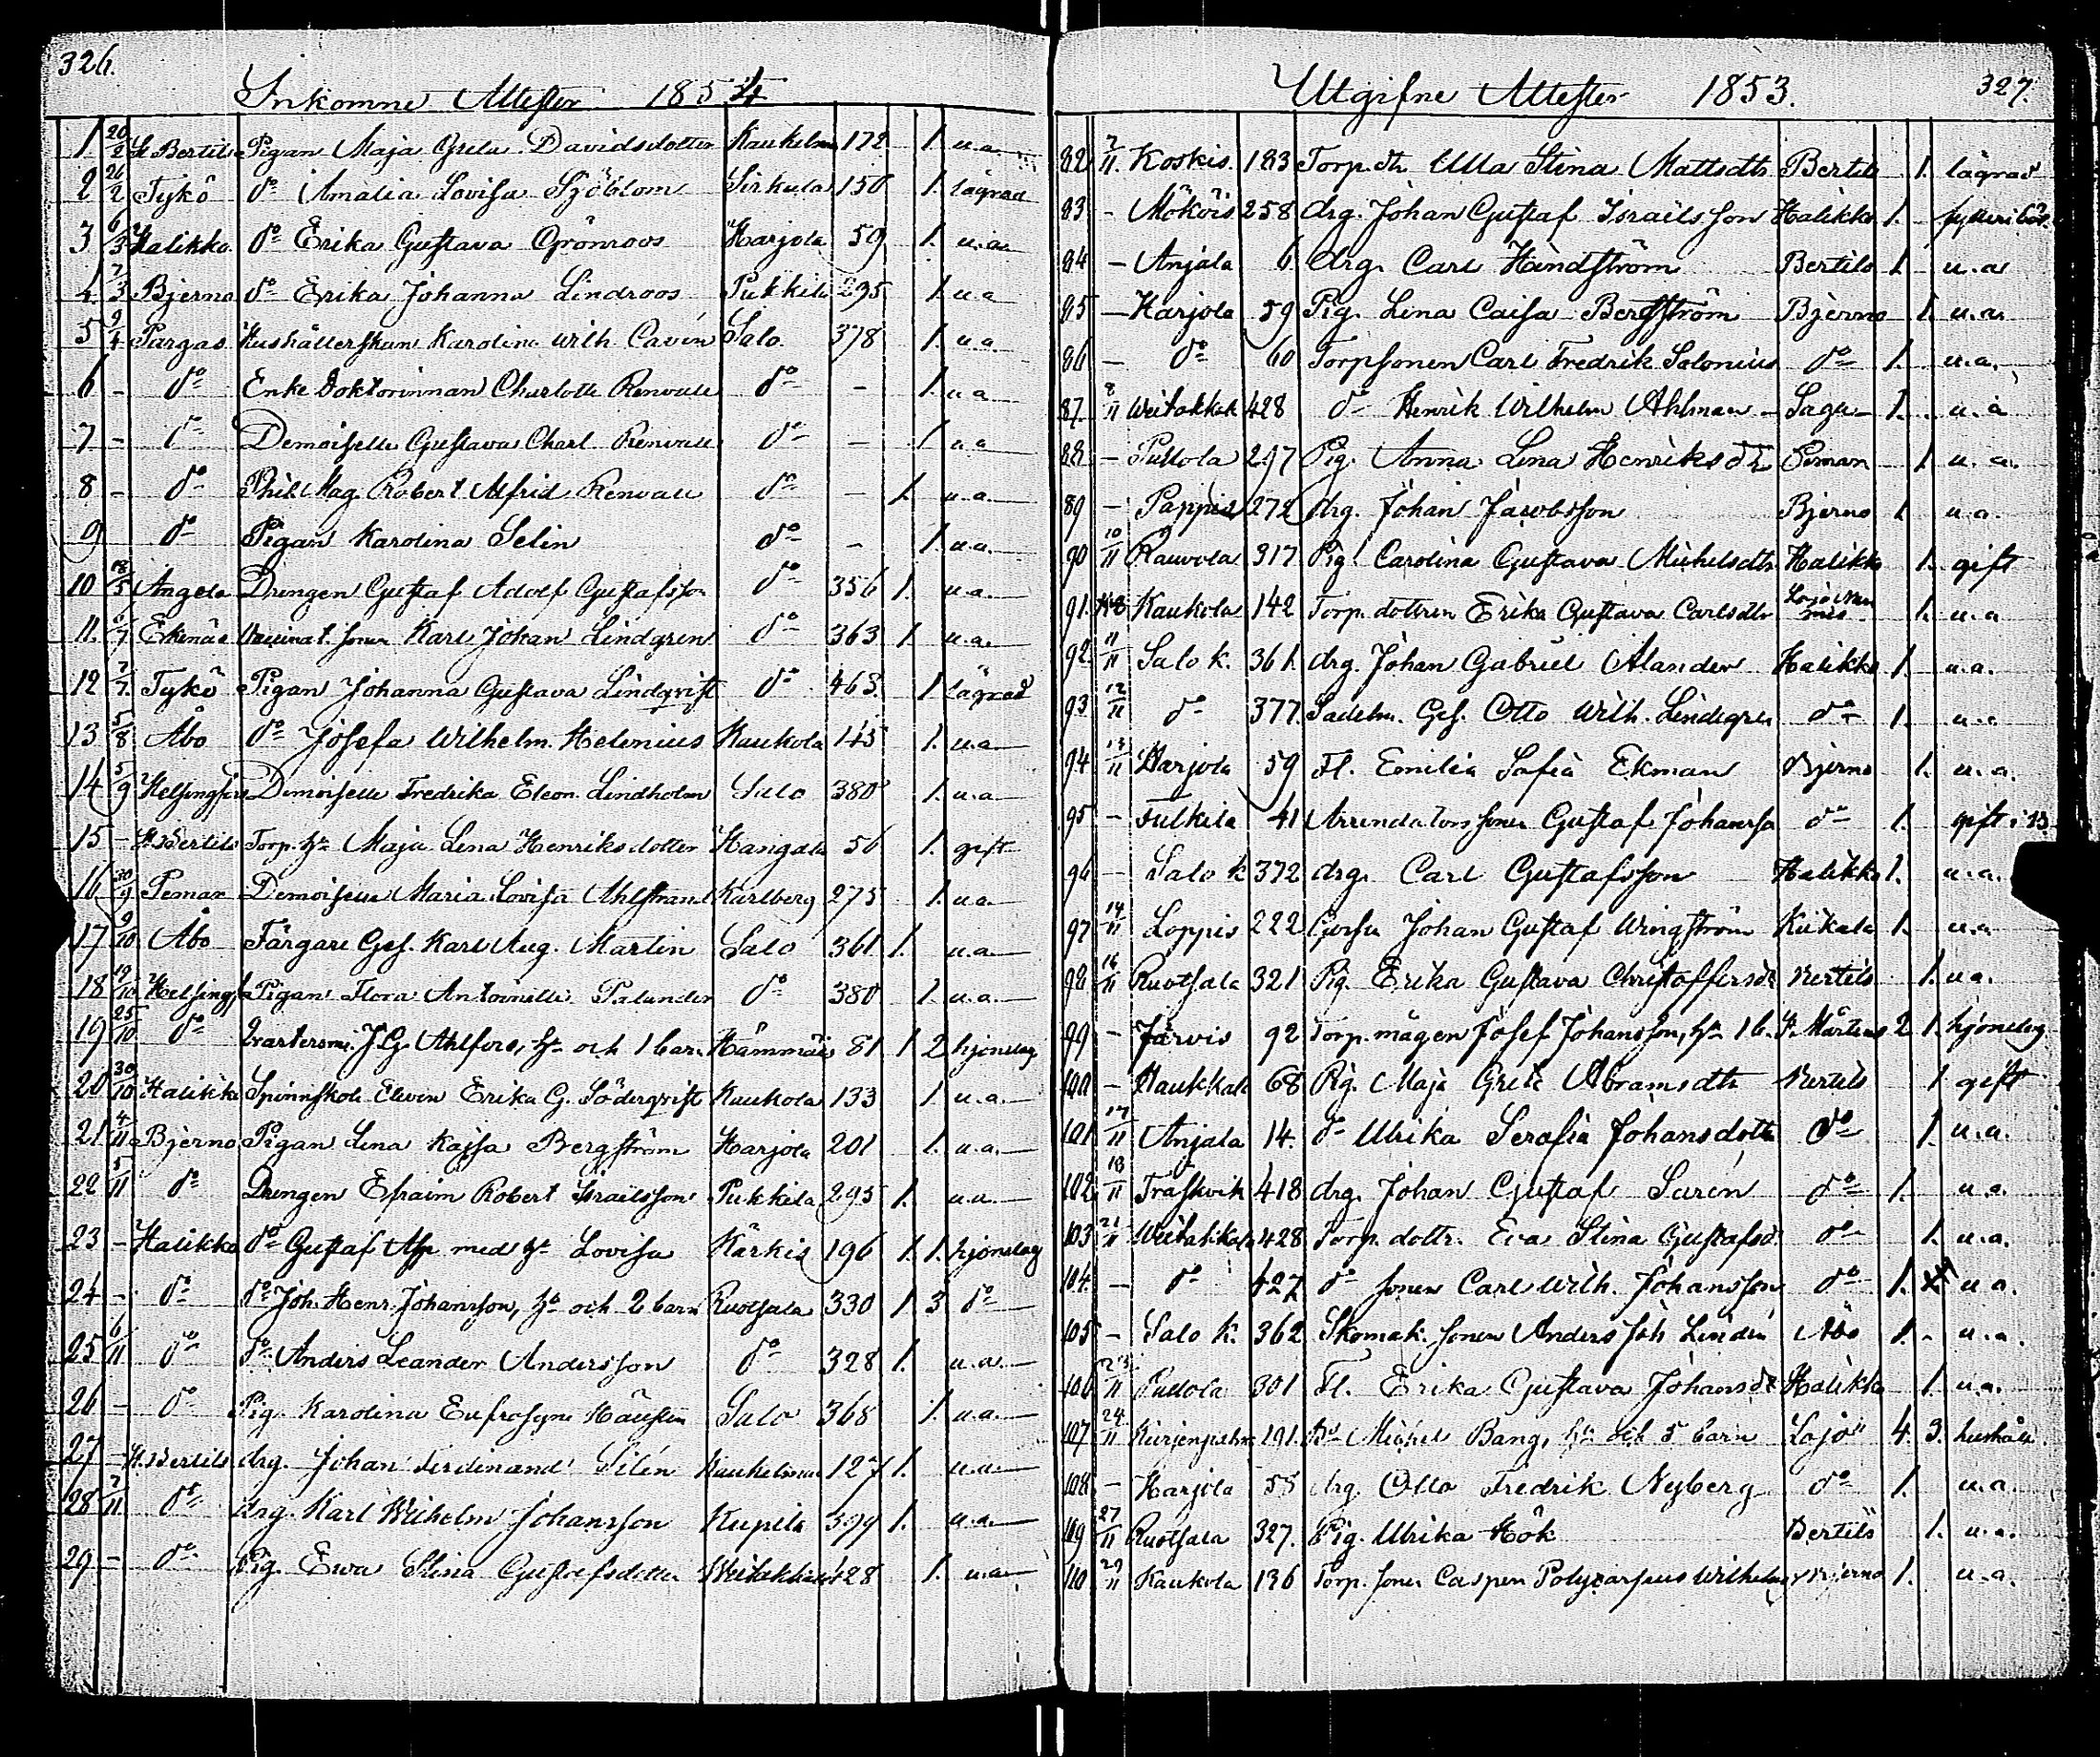 326.
Inkomne Attester 1854
1 20/2 St Bertils Pigan Maja Greta Davidsdotter Kaukelma 172 1. u.a.
2 26/2 Tykö do Amalia Lovisa Sjöblom Sirkula 150 1. lägrad
3 6/3 Halikko do Erika Gustava Grönroos Harjola 59 1. u.a.
4 7/3 Bjerno do Erika Johanna Lindroos Pukkila 295 1. u.a
5 9/4 Pargas Hushållerskan Karolina Wilh. Cavén Salo 378 1. u.a
6 - do Enke Doktorinnan Charlotte Renvall do - 1. u.a
7 - do Demoiselle Gustava Charl. Renvall do - 1 u.a
8 - do Phil. Mag. Robert Alfrid Renvall do - 1. u.a.
9 do Pigan Karolina Selin do - 1. u.a.
10 18/5 Angela Drengen Gustaf Adolf Gustafsson do 356 1. u.a.
11. 6/7 Ekenäs Karl Johan Lindgren do 363 1. u.a.
12 7/7. Tykö Pigan Johanna Gustava Lindqvist do 463. 1 lägrad
13 5/8 Åbo do Josefa Wilhelm. Helenius Kaukola 145 1. u.a
14 5/9 Helsingfors Demoiselle Fredrika Eleon. Lindholm Salo 380 1. u.a
15 - St Bertils Torp. hu Maja Lena Henriksdotter Hangala 56 1. gift
16 30/9 Pemar Demoiselle Maria Lovisa Ahlstrand Karlberg 275 1. u.a
17 9/10 Åbo Färgare Ges. Karl Aug. Martin Salo 361 1. u.a
18 19/10 Helsingf. Pigan Flora Antoinette Palander do 380 1. u.a.
19 25/10 do J. G. Ahlfors, hu och 1 barn Hämmäis 81 1 2 hjonelag
20 30/10 Halikko Spinnskole Eleven Erika G. Söderqvist Kaukola 133 1. u.a.
21. 4/11 Bjerno Pigan Lena Kajsa Bergström Harjola 201 1. u.a.
22 5/11 do Drengen Efraim Robert Israelsson Pukkila 295 1. u.a.
23 - Halikko do Gustaf Asp med hu Lovisa Kärkis 196 1. 1. hjonelag
24 - do do Joh. Henr. Johansson, hu och 2 barn Ruotsala 330 1 3 do
25 6/11 do do Anders Leander Andersson do 328 1. u.a.
26 - do Pig. Karolina Eufrosyne Salo 368 1. u.a.
27 - St. Bertils drg. Johan Ferdinand Silén Kaukelma 127 1. u.a.
28 7/11 do drg. Karl Wilhelm Johansson Kupila 399 1. u.a.
29 - do Pig. Ewa Stina Gustafsdotter Weitakkala 428 1. u.a.
327.
Utgifne Attester 1853.
82 7/11. Koskis. 183 Torp. dtr Ulla Stina Mattsdtr Bertils 1. lägrad
83 - Mököis 258 drg. Johan Gustaf Israelsson Halikko 1.
84 - Anjala 6. drg. Carl Hindström Bertils 1. u.a
85 - Harjola 59 Pig. Lena Caisa Bergström Bjerno 1. u.a.
86 - do 60 Torpsonen Carl Fredrik Salonius do 1. u.a.
87. 8/11 Weitakkala 428 do Henrik Wilhelm Ahlman Sagu 1. u.a
88 - Pullola 297 Pig. Anna Lena Henriksdtr Pemar 1 u.a.
89 - Pappila 272 drg. Johan Jacobsson Bjerno 1 u.a.
90 10/11 Rauvola 317 Pig. Carolina Gustava Michelsdtr Halikko 1. gift
91. Kaukola 142 Torp. dottren Erika Gustava Carlsdtr 1. u.a
92 11/11 Salo k. 361. drg. Johan Gabriel Alander Halikko 1. u.a.
93 12/11 do 377. Sadelm. Ges. Otto Wilh. Lindegren do 1. u.a
94 13/11 Harjola 59 Fl. Emilia Sofia Ekman Bjerno 1. u.a.
95 - Fulkila 41 Arrendatorssonen Gustaf Johansso do 1. gift i 13
96 - Salo k 372 drg. Carl Gustafsson Halikko 1. u.a.
97 14/11 Loppis 222 Johan Gustaf Wingström Kiikala 1. u.a
98 16/11 Ruotsala 321 Pig. Erika Gustava Christoffersdr Bertils 1. u.a.
99 - Järvis 92 Torp. mågen Josef Johansson, hu 1 b. St. Mårtens 2 1. hjonelag
100 - Haukkala 68 Pig. Maja Greta Abramsdtr Bertils 1 gift
101 17/11 Anjala 14. do Ulrika Serafia Johansdottr do 1. u.a.
102. 18/11 Traskvik 418 drg. Johan Gustaf Saren do 1. u.a.
103 21/11 Weitakkala 428 Torp. dottr. Eva Stina Gustafsd. do 1. u.a.
104. - do 427 do sonen Carl Wilh. Johansson do 1. u a.
105 - Salo k. 362 Skomak. sonen Anders Joh Lindén Åbo 1 - u.a.
106 23/11 Pullola 301 Fl. Erika Gustava Johansdr Halikko 1. u.a.
107 24/11 191. Michel Bang, hu och 5 barn Lojo 4. 3. hushåll
108 - Harjola 58 drg. Otto Fredrik Nyberg do 1. u.a
109 27/11 Ruotsala 327. Pig. Ulrika Hök Bertils 1. u.a.
110 29/11 Kaukola 136 Torp. sonen Casper Polycarpus Wilhelms Bjerno 1. u.a.